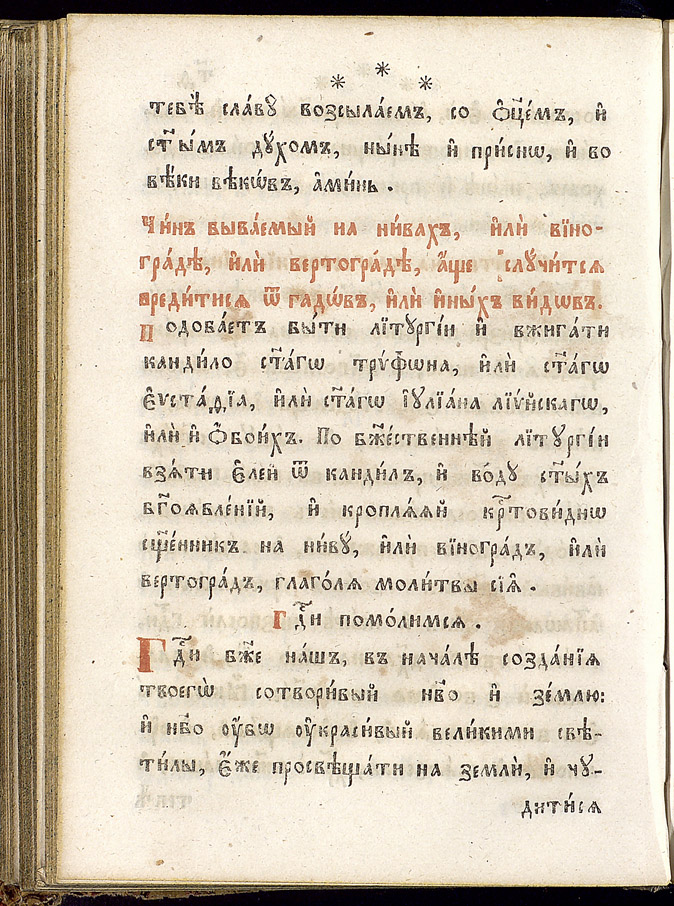 * * *
тебѣ̀ сла́вꙋ возсыла́емъ, со ѻ҆ц҃е́мъ, и҆
ст҃ы́мъ дꙋ́хомъ, ны́нѣ и҆ при́снѡ, и҆ во
вѣ́ки вѣкѡ́въ, а҆ми́нь .
Чи́нъ быва́емый на ни́вахъ, и҆лѝ вїно-
гра́дѣ, и҆лѝ вертогра́дѣ, а҆́ще слꙋчи́тсѧ
вреди́тисѧ ѿ га́дѡвъ, и҆лѝ и҆ны́хъ ви́дѡвъ.
Подоба́етъ бы́ти лїтꙋргі́и и҆ вжига́ти
канди́ло ст҃а́гѡ трѵ́фѡна, и҆лѝ ст҃а́гѡ
є҆ѵста́ѳїа, и҆лѝ ст҃а́гѡ і҆ꙋлїа́на лїѵ́йскагѡ,
и҆лѝ и҆ ѻ҆бои́хъ. По бж҃е́ственнѣй лїтꙋргі́и
взѧ́ти є҆ле́й ѿ канди́лъ, и҆ во́дꙋ ст҃ы́хъ
бг҃оѧвле́нїй, и҆ кроплѧ́ѧй крⷭ҇тови́днѡ
сщ҃е́нникъ на ни́вꙋ, и҆лѝ вїногра́дъ, и҆лѝ
вертогра́дъ, глаго́лѧ моли́твы сїѧ̑ .
Гдⷭ҇и помо́лимсѧ .
Гдⷭ҇и бж҃е на́шъ, въ нача́лѣ созда́нїѧ
твоегѡ̀ сотвори́вый нб҃о и҆ зе́млю:
и҆ нб҃о ᲂу҆́бѡ ᲂу҆краси́вый вели́кими свѣ-
ти́лы, є҆́же просвѣща́ти на землѝ, и҆ чꙋ-
дити́сѧ